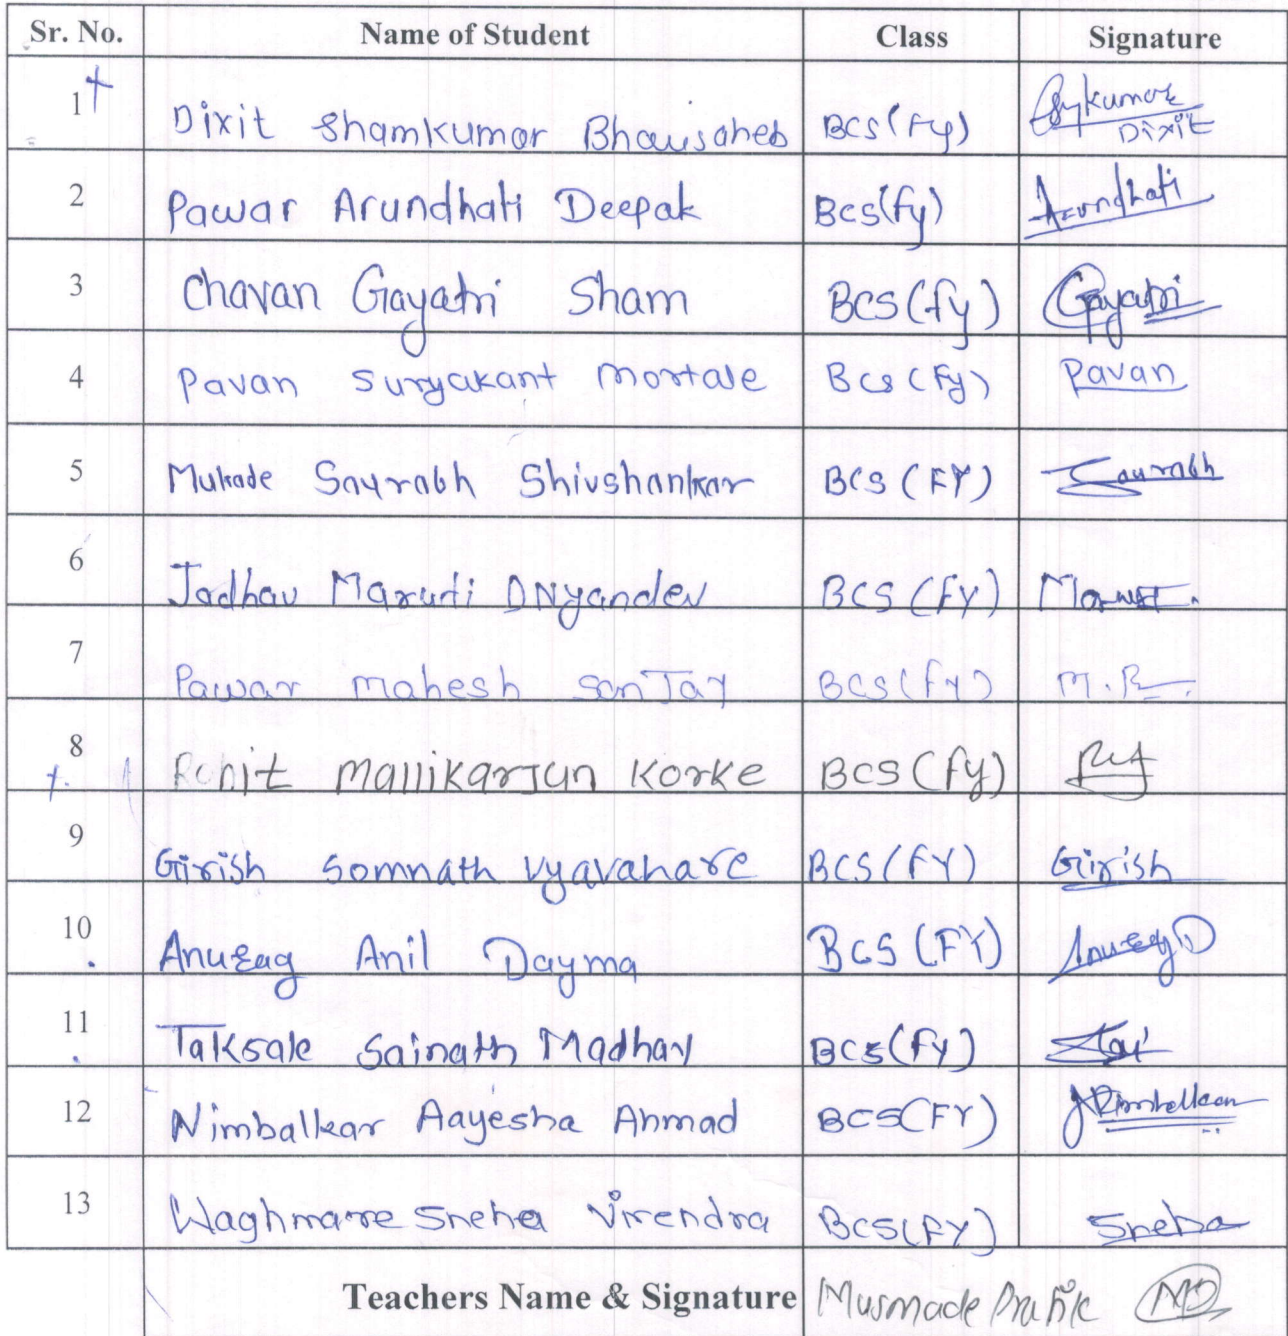 Sr. No. Name of Student Class Signature
1 Dixit Shamkumar Bhausaheb BCS(Fy) Dixit
2 Pawar Arundhati Deepak BCS(fy) Arundhati
3 Chavan Gayatri Sham BCS(fy) Gayatri
4 Pavan Suryakant Mortale BCS(Fy) Pavan
5 Mukade Saurabh Shivshankar BCS(FY) Saurabh
6 Jadhav Maruti DNyandev BCS(FY)
7 Pawar Mahesh SanJay BCS(FY)
8 Rohit MalliKarJun Korke BCS(fy)
9 Girish Somnath Vyavahare BCS(FY) Girish
10 Anurag Anil Dayma BCS(FY) Anurag D
11 Taksale Sainath Madhav BCS(FY) Sai
12 Nimbalkar Aayesha Ahmad BCS(FY) Nimbalkar
13 Waghmare Sneha Virendra BCS(FY) Sneha
Teachers Name & Signature Musmade Pratik